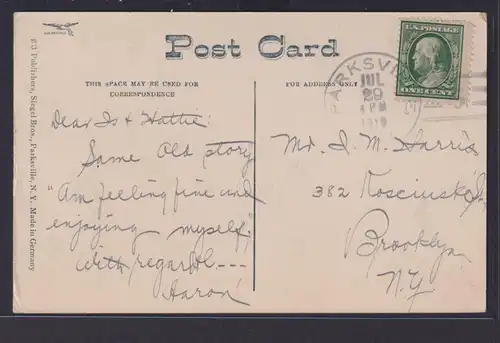 Post Card
THIS SPACE MAY BE USED FOR
CORRESPONDENCE
FOR ADDRESS ONLY
U.S. POSTAGE
ONE CENT
PARKSVI
JUL
29
4 PM
Dear Is & Hattie:
Same old story
"Am feeling fine and
enjoying myself."
with regards ---
Aaron
Mr. I. M. Harris
382 Kosciusko St.
Brooklyn
N.Y.
Publishers, Siegel Bros., Parksville, N. Y. Made in Germany